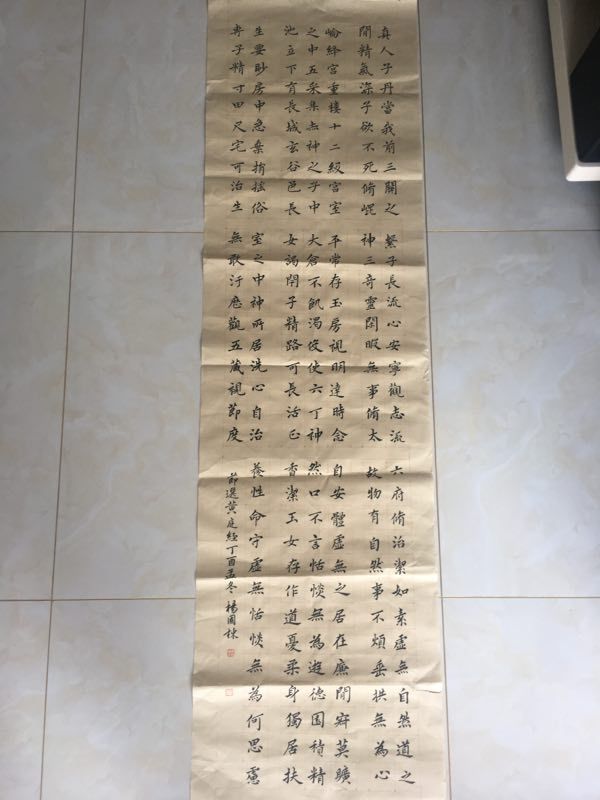 真人子丹當我前三關之
間精氣深子欲不死脩崐
崘絳宮重樓十二級宮室
之中五采集赤神之子中
池立下有長城玄谷邑長
生要眇房中急棄捐搖俗
專子精寸田尺宅可治生
繫子長流心安寧觀志流
神三奇靈閑暇無事脩太
平常存玉房視明達時念
大倉不飢渴役使六丁神
女謁閉子精路可長活正
室之中神所居洗心自治
無敢汙歷觀五藏視節度
六府脩治潔如素虛無自然道之
故物有自然事不煩垂拱無為心
自安體虛無之居在廉間寂莫曠
然口不言恬惔無為遊德園積精
香潔玉女存作道憂柔身獨居扶
養性命守虛無恬惔無為何思慮
節選黃庭經丁酉孟冬楊國棟